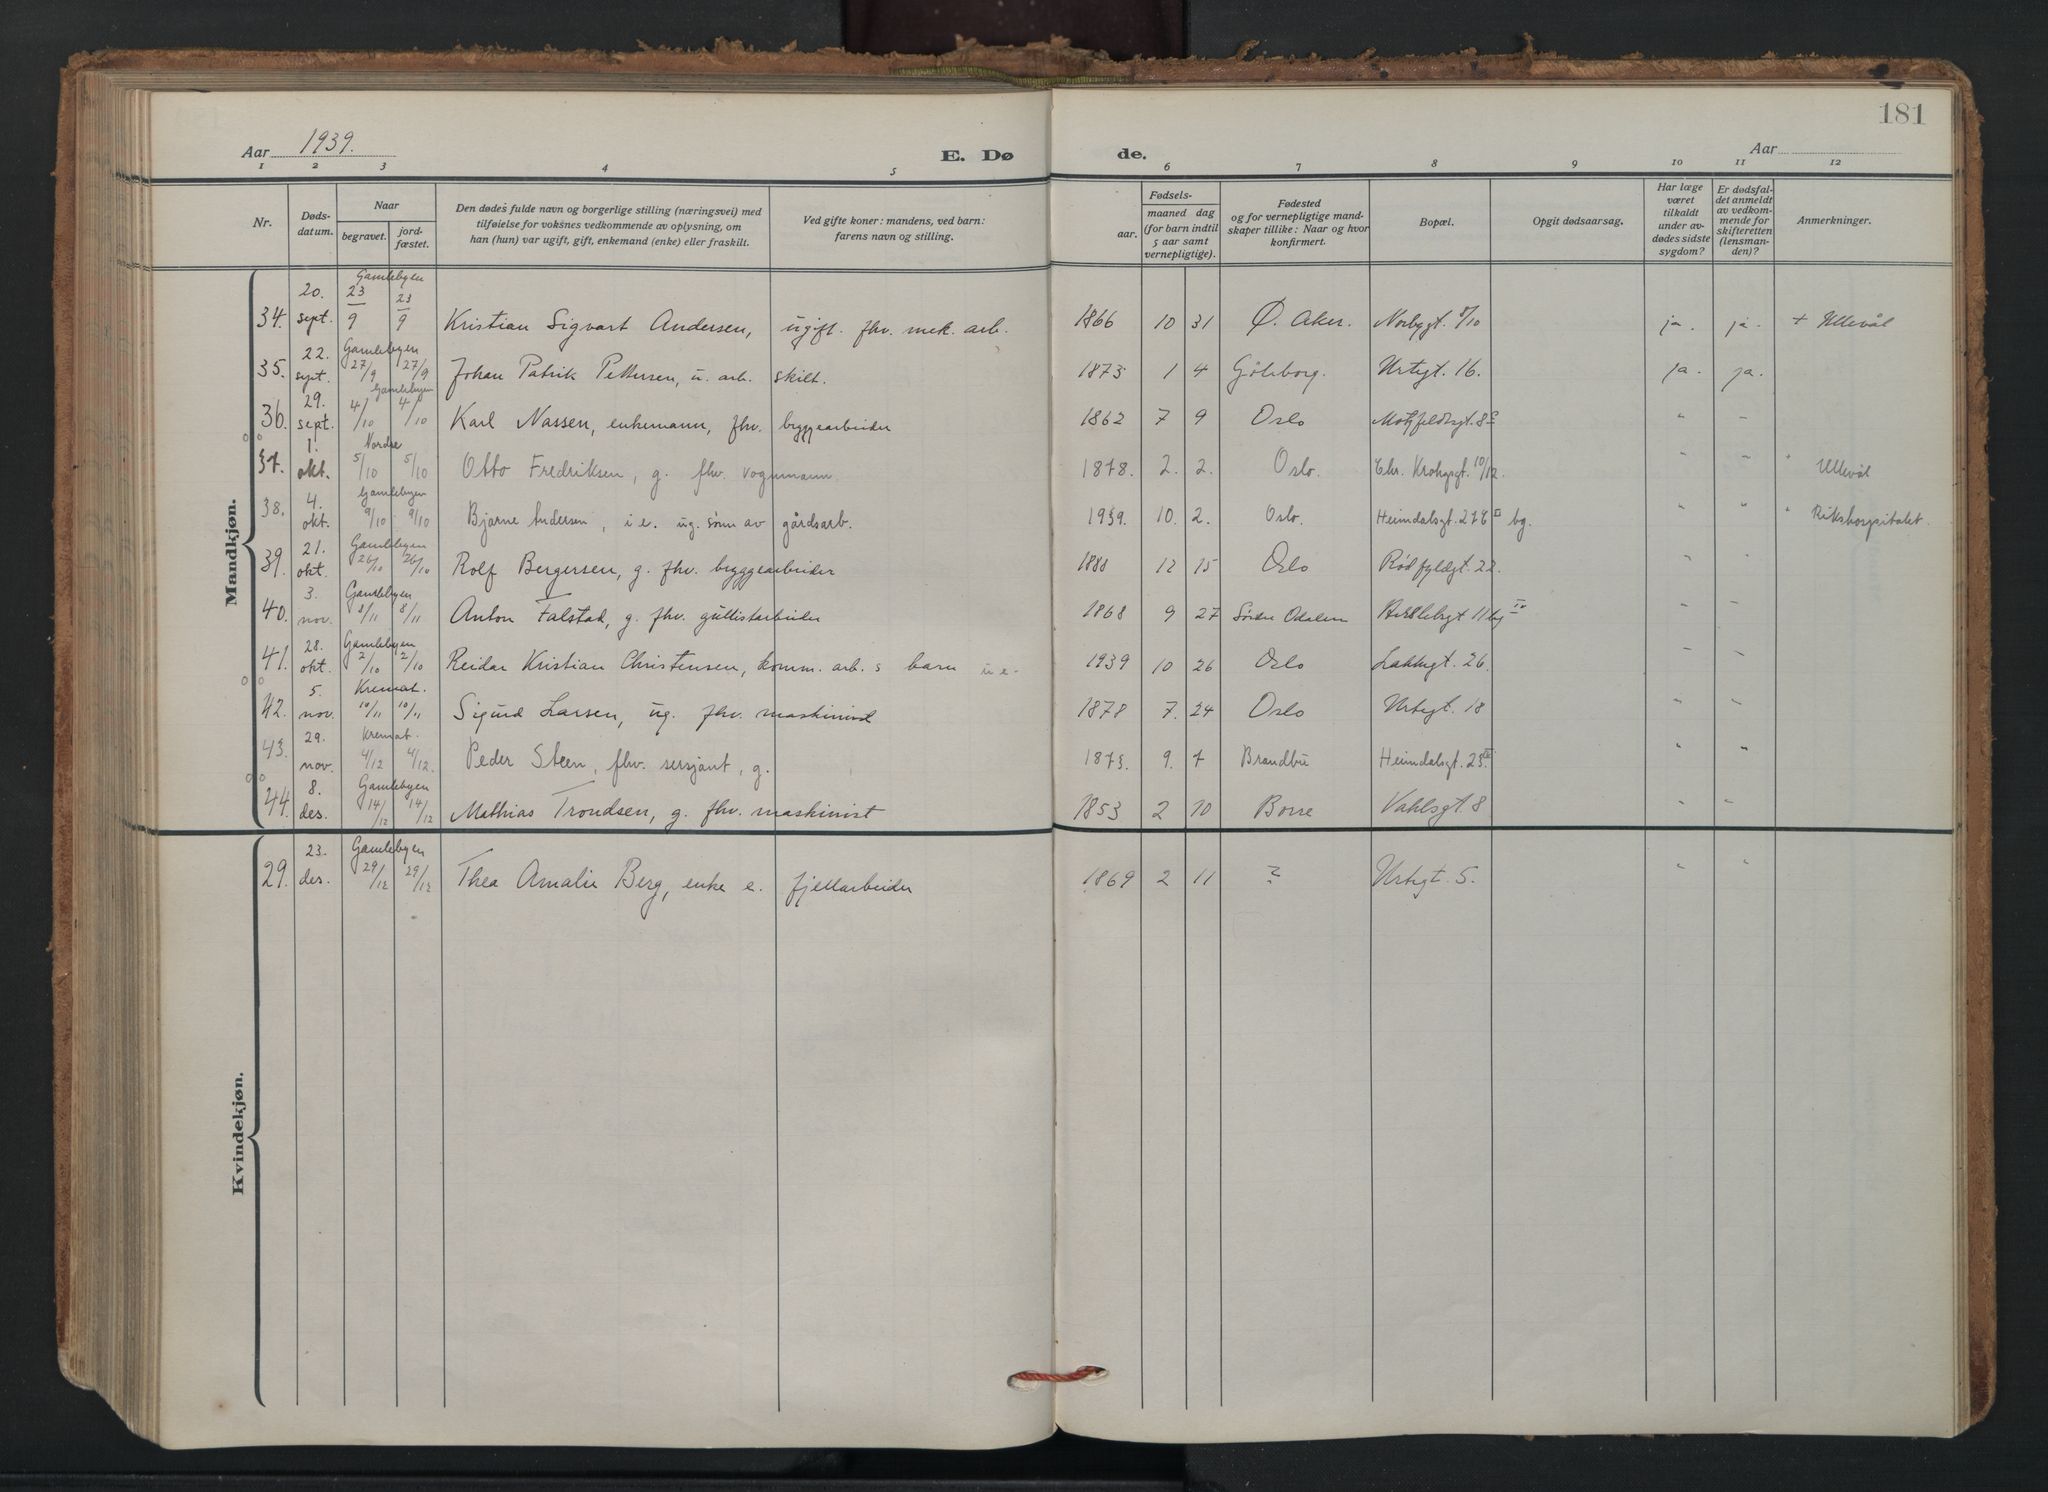 181
Aar 1939. E. Dø de. Aar
1 2 3 4 5 6 7 8 9 10 11 12
Nr.
Døds-
datum.
Naar
begravet.
jord-
fæstet.
Den dødes fulde navn og borgerlige stilling (næringsvei) med
tilføielse for voksnes vedkommende av oplysning, om
han (hun) var ugift, gift, enkemand (enke) eller fraskilt.
Ved gifte koner: mandens, ved barn:
farens navn og stilling.
Fødsels-
aar.
maaned dag
(for barn indtil
5 aar samt
vernepligtige).
Fødested
og for vernepligtige mand-
skaper tillike: Naar og hvor
konfirmert.
Bopæl.
Opgit dødsaarsag.
Har læge
været
tilkaldt
under av-
dødes sidste
sygdom?
Er dødsfal-
det anmeldt
av vedkom-
mende for
skifteretten
(lensman-
den)?
Anmerkninger.
Mandkjøn.
Gamlebyen
34. 20. sept. 23/9 23/9 Kristian Sigvart Andersen, ugift. fhv. mek. arb. 1866 10 31 Ø. Aker. Norbygt. ja. ja. + Ullevål
Gamlebyen
35. 22. sept. 27/9 27/9 Johan Patrik Pettersen, u. arb. skilt. 1873 1 4 Göteborg. Urtegt. 16. ja. ja.
Gamlebyen
36. 29. sept. 4/10 4/10 Karl Nassen, enkemann, fhv. bryggearbeider 1862 7 9 Oslo Motzfeldtsgt. 8 " "
Nordre
37. 1. okt. 5/10 5/10 Otto Fredriksen, g. fhv. vognmann. 1878. 2. 2. Oslo. Chr. Krohgsgt. 10/12. " " " Ullevål
Gamlebyen
38. 4. okt. 9/10 9/10 Bjarne Andersen, i e. ug. sønn av gårdsarb. 1939. 10. 2. Oslo. Heimdalsgt. 27 bg. " " " Rikshospitalet.
Gamlebyen
39. 21. okt. 26/10 26/10 Rolf Bergersen, g. fhv. bryggearbeider 12 15 Oslo Rødfyldgt. 22. " "
Gamlebyen
40. 3. nov. 8/11 8/11 Anton Falstad, g. fhv. 1868 9 27 Søndre Odalen 11 bg IV " "
Gamlebyen
41. 28. okt. 2/10 2/10 Reidar Kristian Christensen, komm. arb. s barn u e. 1939 10 26 Oslo Lakkegt. 26. " "
Kremat.
42. 5. nov. 10/11 10/11 Sigurd Larsen, ug. fhv. maskinist 1878 7. 24 Oslo Urtegt. 18 " "
Kremat.
43. 29. nov. 4/12 4/12. Peder Steen, fhv. sersjant, g. 1873. 9. 7 Brandbu Heimdalsgt. 23 " "
Gamlebyen
44. 8. des. 14/12 14/12 Mathias Trondsen, g. fhv. maskinist 1853 2 10 Borre Vahlsgt. 8 " "
Kvindekjøn.
Gamlebyen
29. 23. des. 29/12 29/12 Thea Amalie Berg, enke e. fjellarbeider 1869 2 11 ? Urtegt. 5. " "